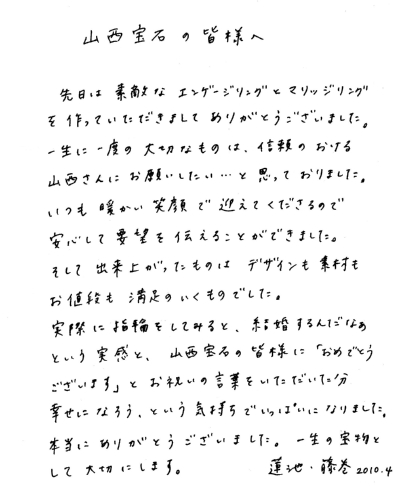 山西宝石の皆様へ
先日は素敵なエンゲージリングとマリッジリング
を作っていただきましてありがとうございました。
一生に一度の大切なものは、信頼のおける
山西さんにお願いしたい…と思っておりました。
いつも暖かい笑顔で迎えてくださるので
安心して要望を伝えることができました。
そして出来上がったものはデザインも素材も
お値段も満足のいくものでした。
実際に指輪をしてみると、結婚するんだなぁ
という実感と、山西宝石の皆様に「おめでとう
ございます」とお祝いの言葉をいただいた分
幸せになろう、という気持ちでいっぱいになりました。
本当にありがとうございました。一生の宝物と
して大切にします。 蓮池・藤巻 2010.4